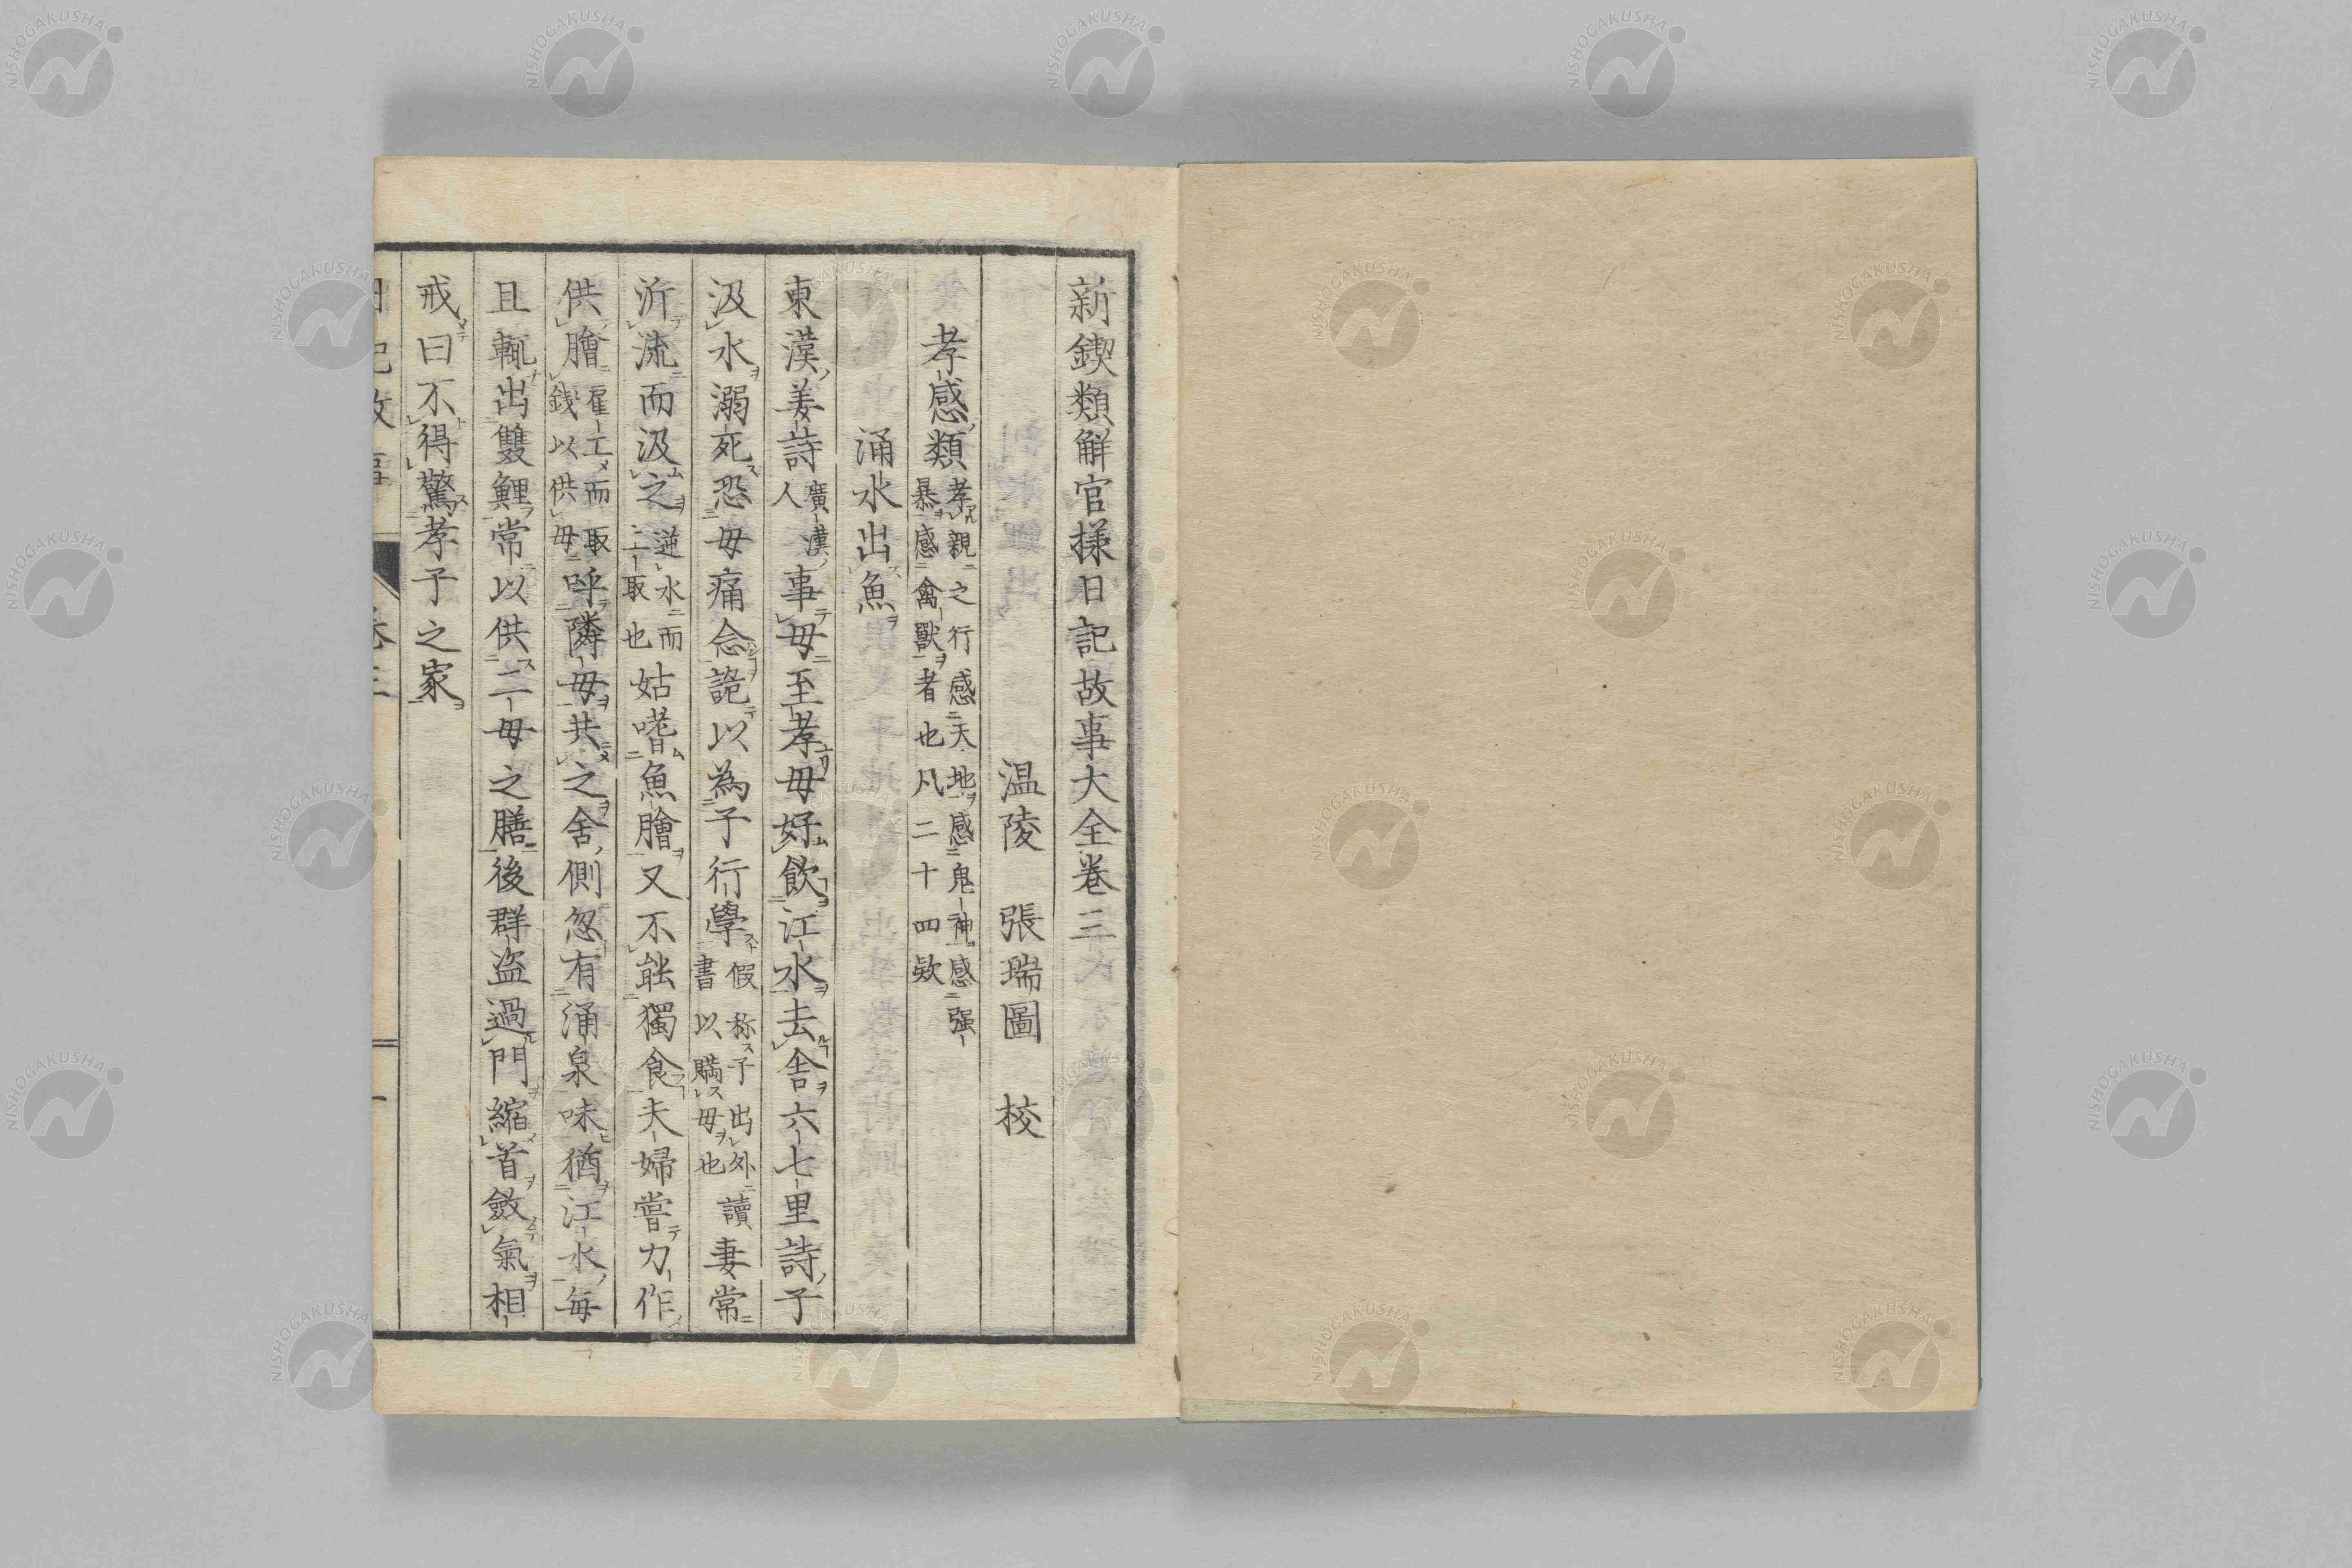 新鍥類解官様日記故事大全巻三
温陵 張瑞圖 校
孝感類 孝親之行感天地感鬼神感强暴感禽獸者也凡二十四欵
涌水出魚
東漢姜詩 廣漢人 事母至孝母好飲江水去舍六七里詩子
汲水溺死恐母痛念詭以為子行學 假称子出外讀書以瞞母也 妻常
泝流而汲之 逆水而上取也 姑嗜魚膾又不能獨食夫婦嘗力作
供膾 雇工而取錢以供母 呼隣母共之舍側忽有涌泉味猶江水每
且輒出雙鯉常以供二母之膳後群盜過門縮首斂氣相
戒曰不得驚孝子之家
NISHOGAKUSHA